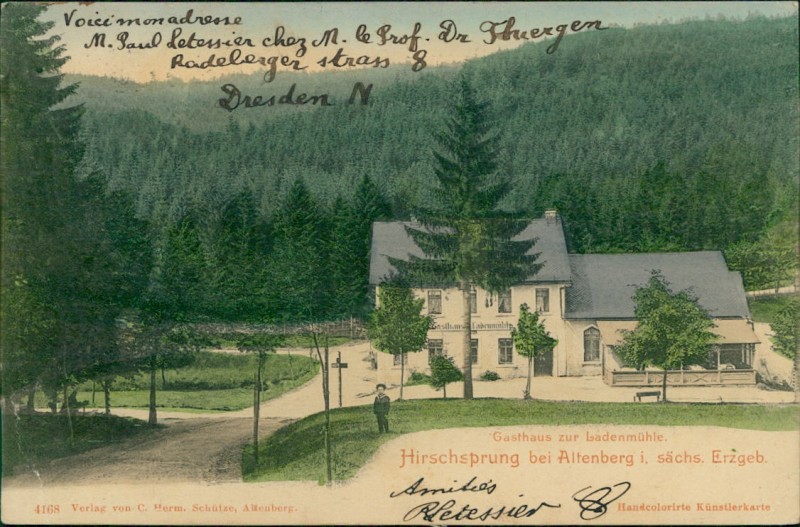 Voici mon adresse
M. Paul Letessier chez M. le Prof. Dr Thuergen
Radeberger strass 8
Dresden N
Gasthaus z. Ladenmühle
Gasthaus zur Ladenmühle.
Hirschsprung bei Altenberg i. sächs. Erzgeb.
Amitiés
PLetessier
4168 Verlag von C. Herm. Schütze, Altenberg.
Handcolorirte Künstlerkarte